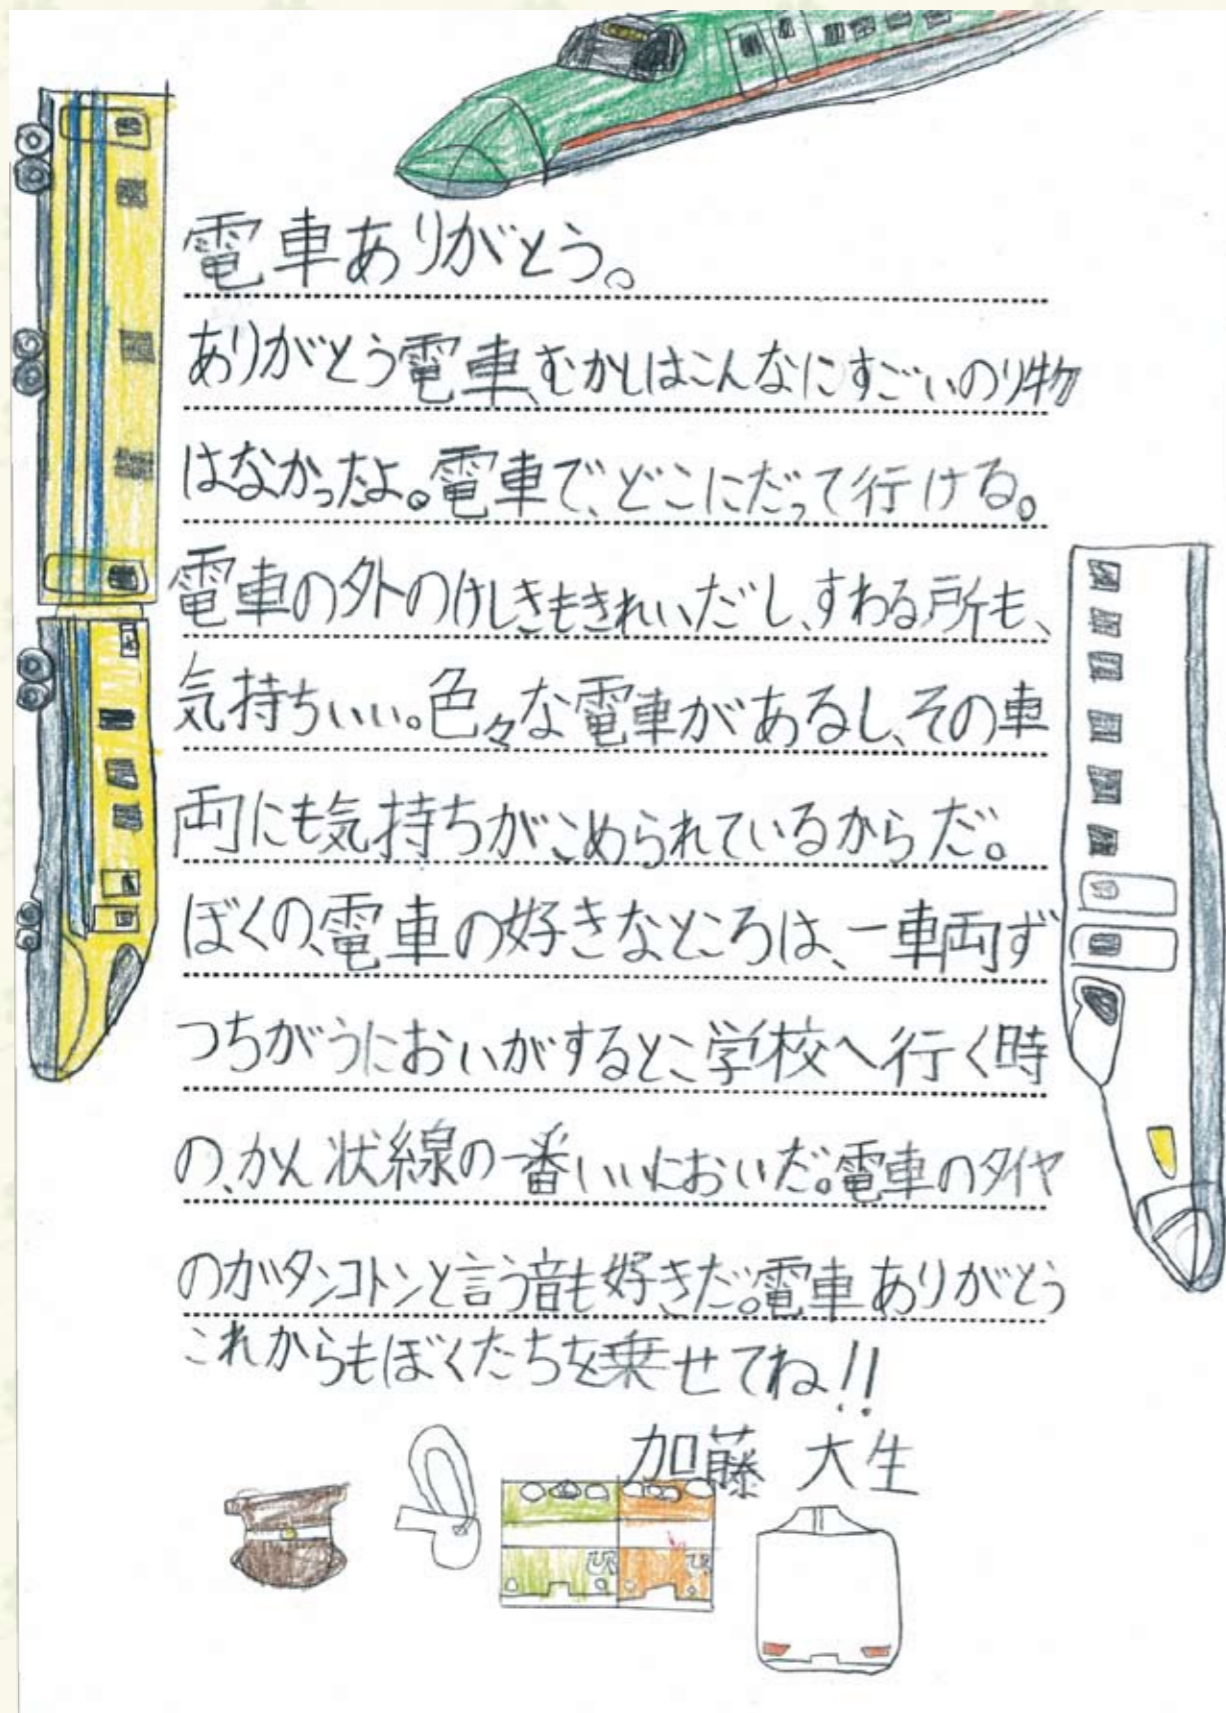 電車ありがとう。
ありがとう電車、むかしはこんなにすごいのり物
はなかったよ。電車で、どこにだって行ける。
電車の外のけしきもきれいだし、すわる所も、
気持ちいい。色々な電車があるし、その車
両にも気持ちがこめられているからだ。
ぼくの、電車の好きなところは、一車両ず
つちがうにおいがするとこ学校へ行く時
の、かん状線の一番いいにおいだ。電車のタイヤ
のガタンコトンと言う音も好きだ。電車ありがとう
これからもぼくたちを乗せてね!!
加藤 大生
JR JR